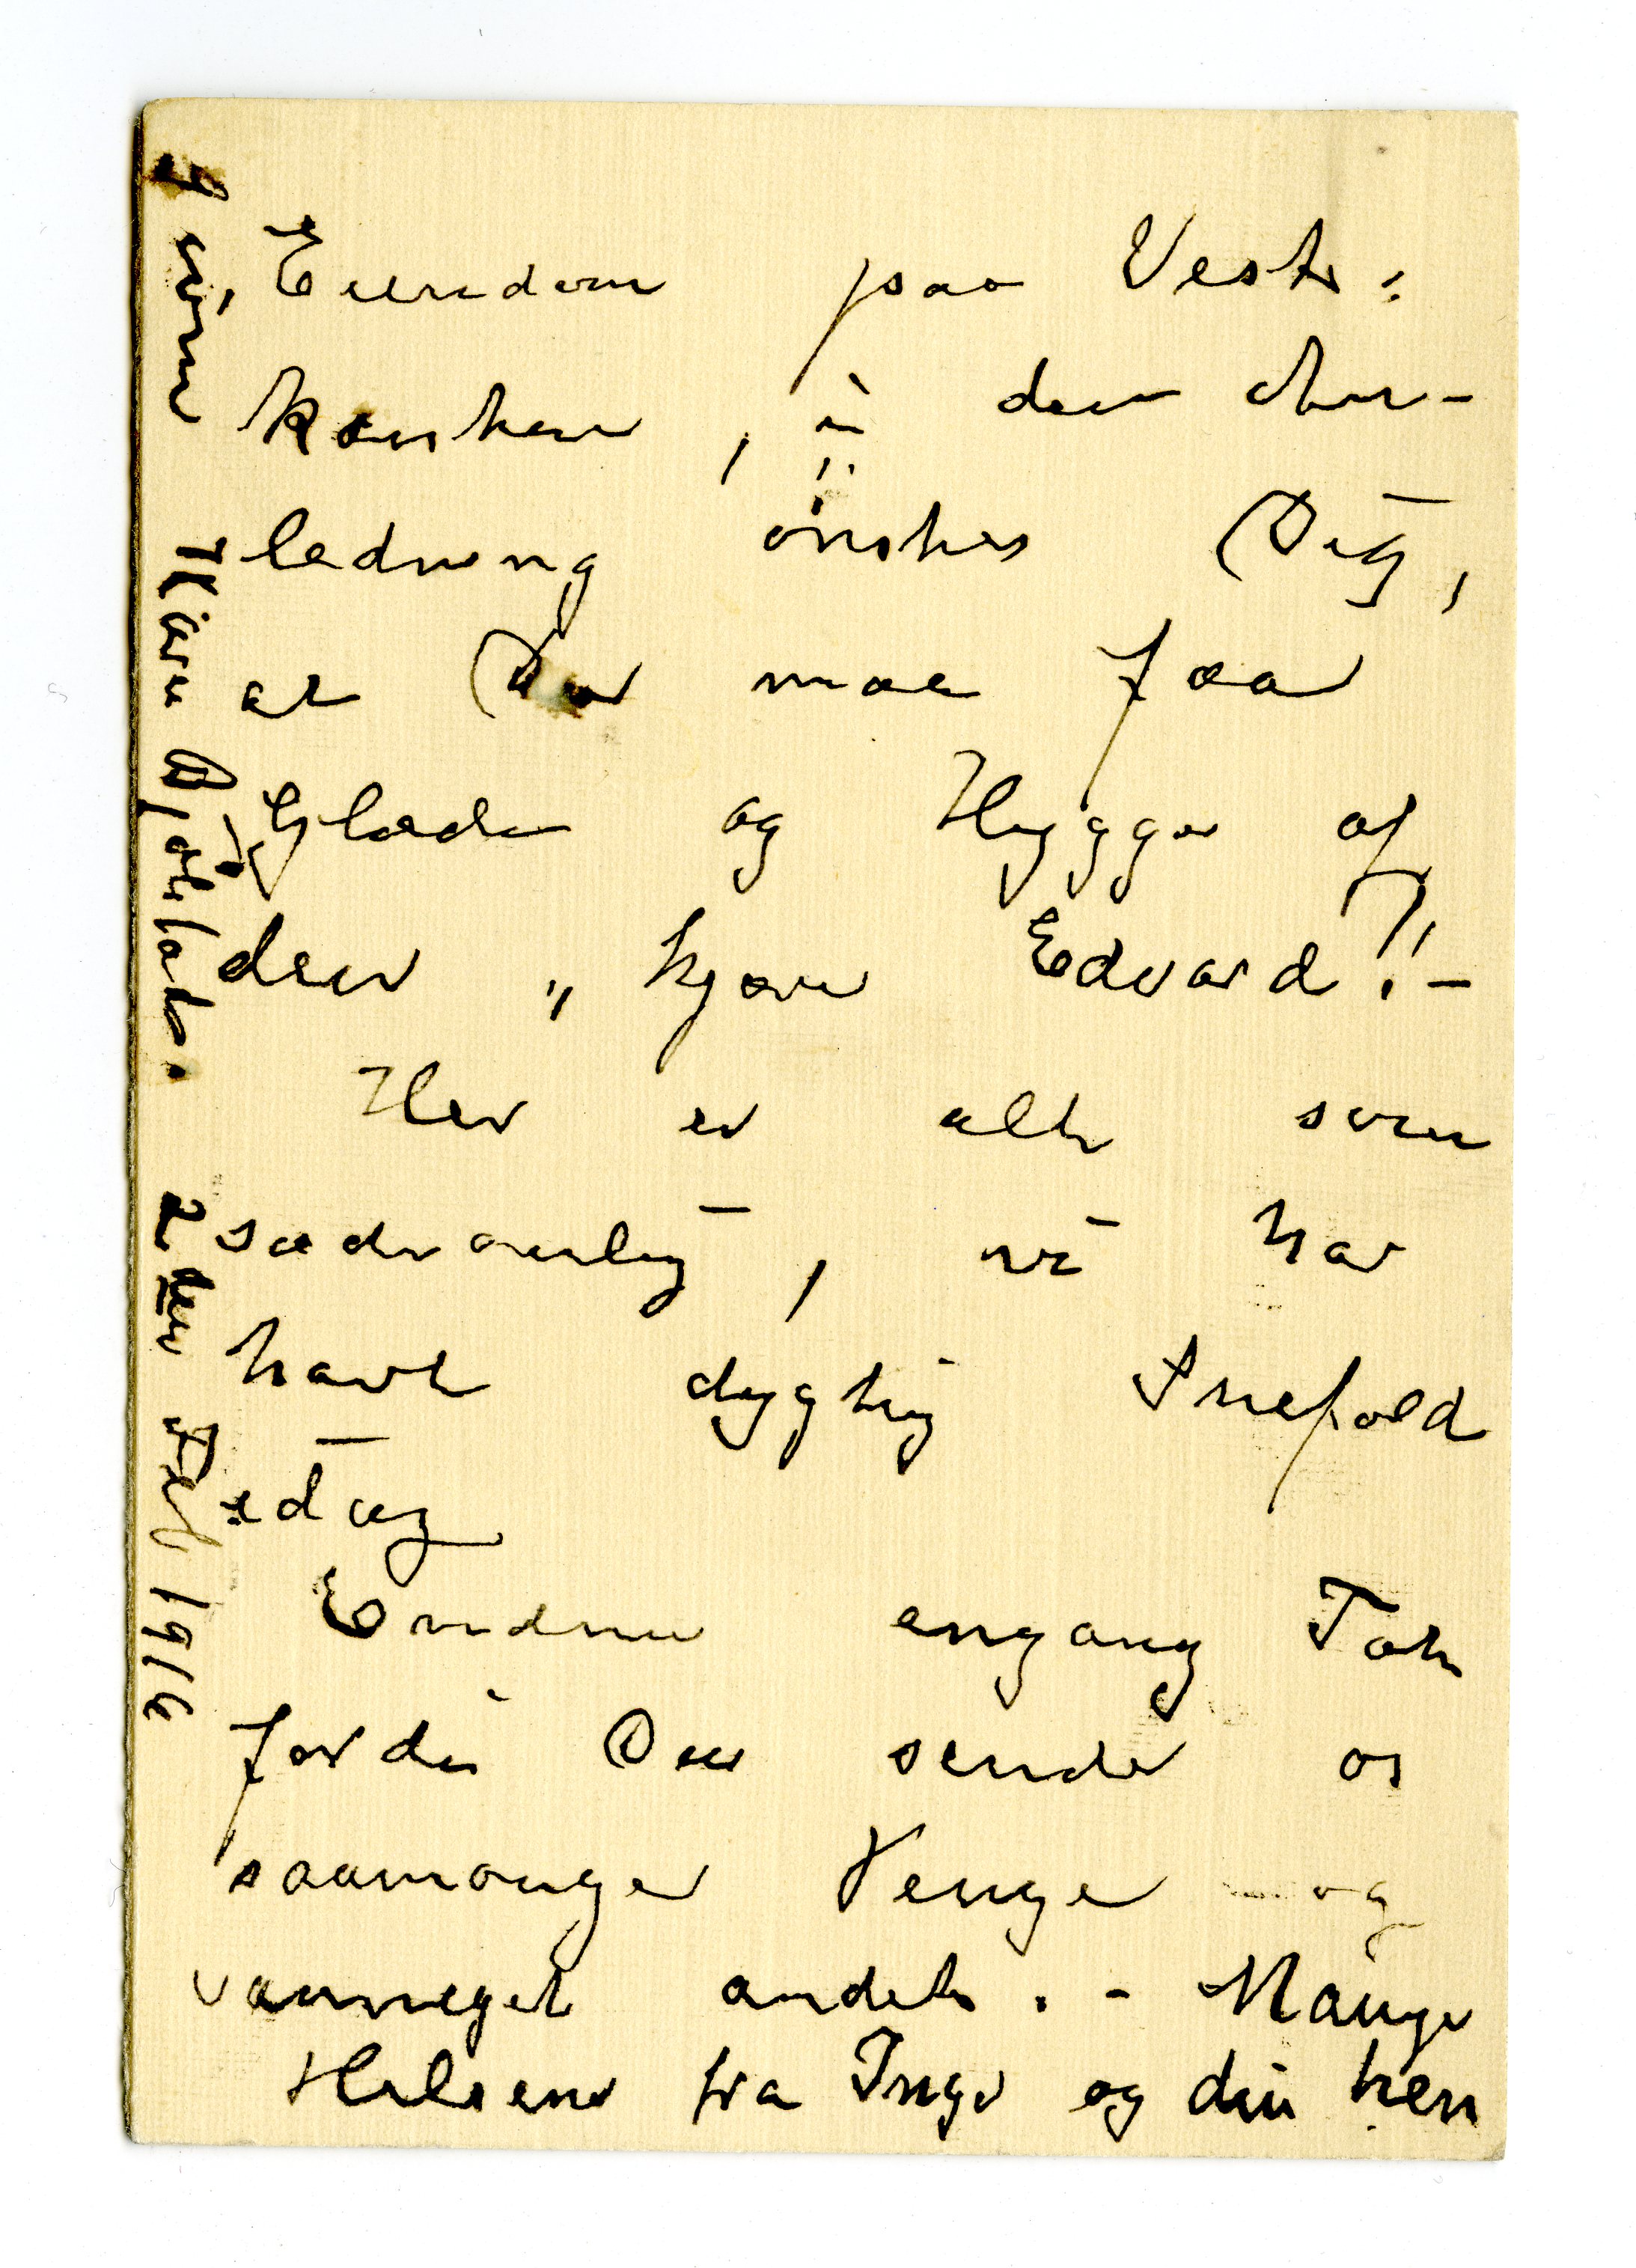 Eiendom paa Vest-
kanten, i den An-
ledning ønskes Dig,
at Du maa faa
Glæde og Hygge af
den, kjære Edvard!-
Her er alt som
sædvanlig, vi har
havt dygtig Snefald
idag
Endnu engang Tak
fordi Du sender os
saamange Penge og
saameget andet. - Mange
Hilsener fra Inger og din hen
givne Karen Bjølstad. 2den Feb 1916